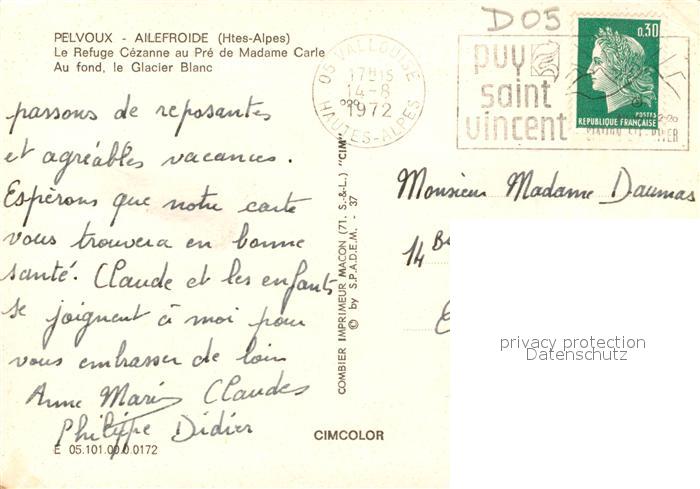 D05
PELVOUX - AILEFROIDE (Htes-Alpes)
Le Refuge Cézanne au Pré de Madame Carle
Au fond, le Glacier Blanc
05 VALLOUISE
17H15
14-8
1972
HAUTES-ALPES
puy
saint
vincent
0,30
POSTES
RÉPUBLIQUE FRANÇAISE
passons de reposantes
et agréables vacances.
Espérons que notre carte
vous trouvera en bonne
santé. Claude et les enfants
se joignent à moi pour
vous embrasser de loin
Anne Marie Claudes
Philippe Didier
E 05.101.00.0.0172
COMBIER IMPRIMEUR MACON (71. S.-&-L.) "CIM"
© by S.P.A.D.E.M. - 37
CIMCOLOR
Monsieur Madame Daumas
14 B
privacy protection
Datenschutz